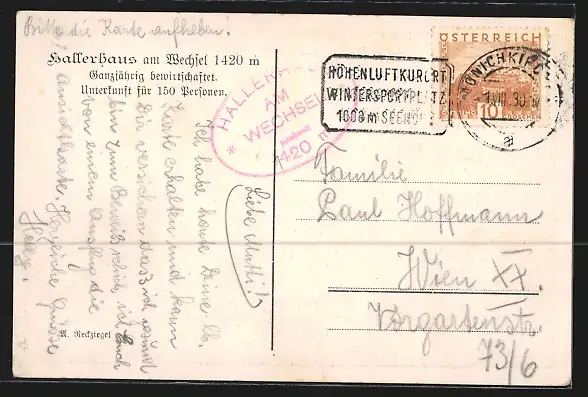 Bitte die Karte aufheben!
Hallerhaus am Wechsel 1420 m
Ganzjährig bewirtschaftet.
Unterkunft für 150 Personen.
HALLERHAUS
AM
WECHSEL
1420 m
HÖHENLUFTKURORT
WINTERSPORTPLATZ
1000 m SEEHÖHE
ÖSTERREICH
10
MÖNICHKIRCHEN
VIII. 30
a
Liebe Mutti!
Ich habe heute Deine lb.
Karte erhalten und kann
Dir versichern daß ich gesund
bin. Zum Beweis schick ich Euch
von einem Ausflug die
Ansichtskarte. Herzliche Grüsse
Familie
Paul Hoffmann
Wien XX.
Vorgartenstr.
73/6
A. Reckziegel